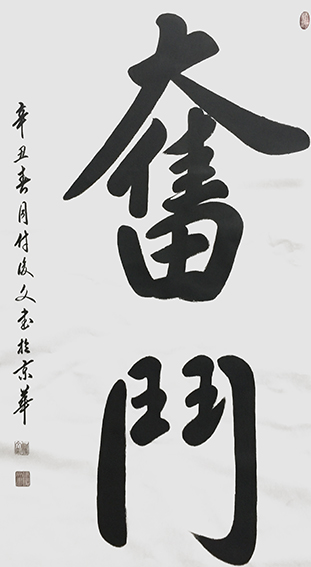 奮鬥
辛丑春月付俊文书於京華